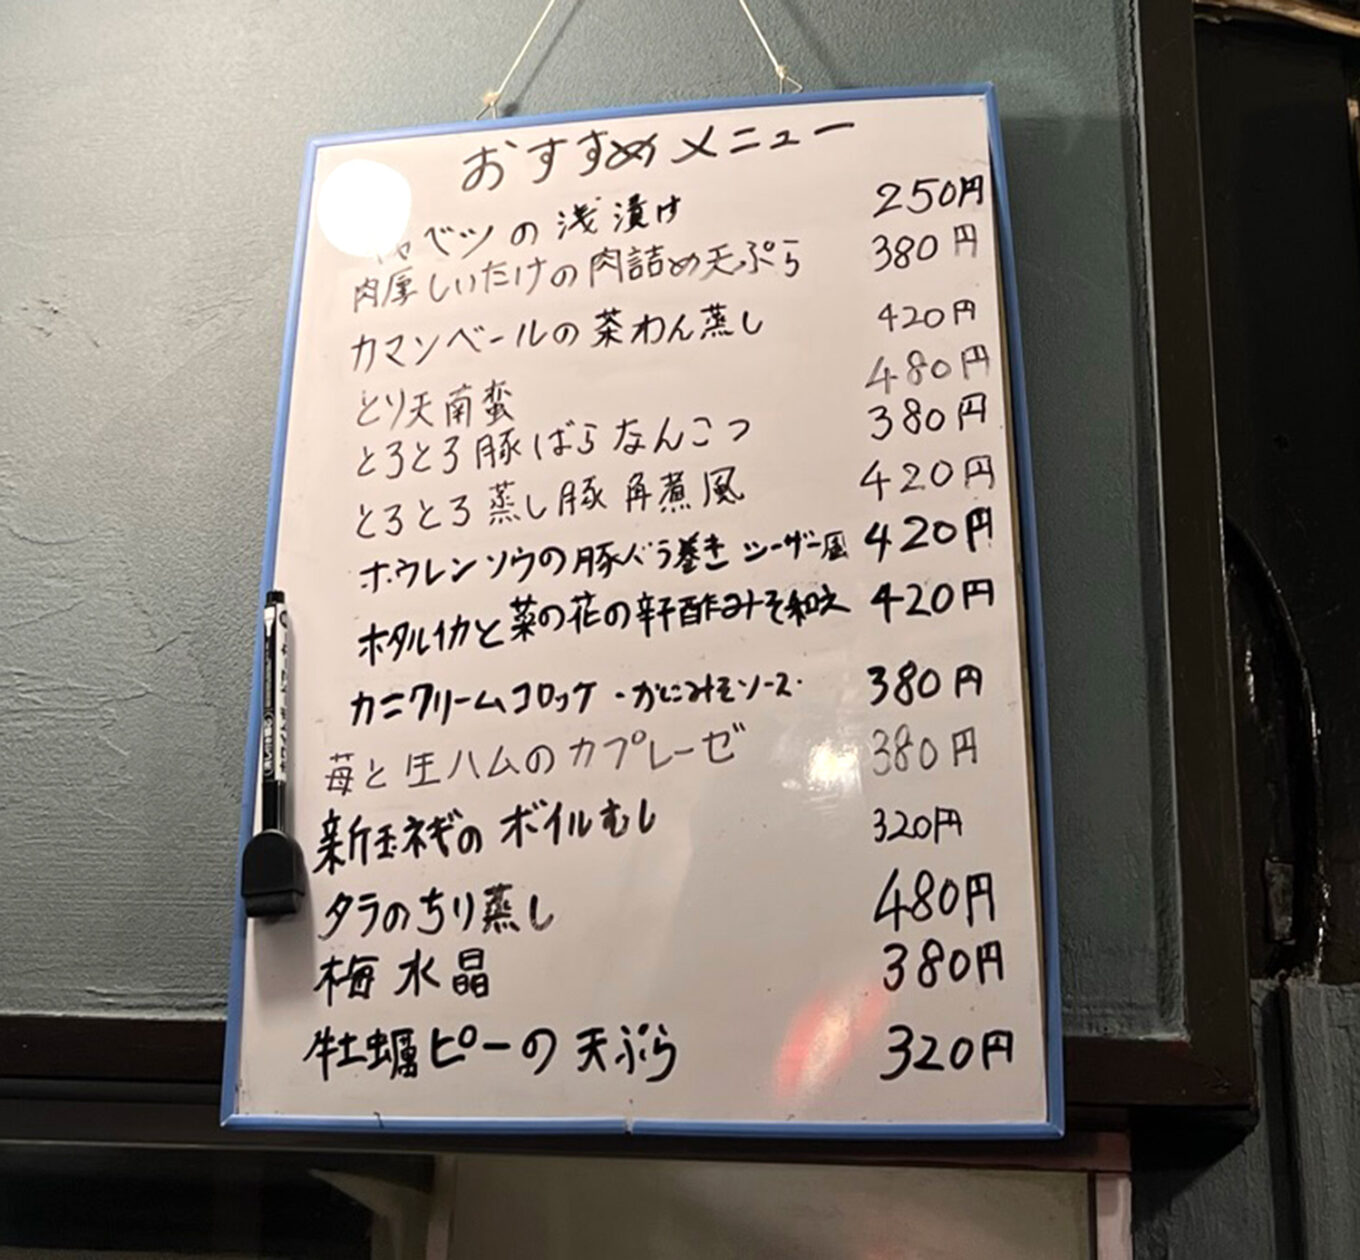 おすすめメニュー
ベツの浅漬け 250円
肉厚しいたけの肉詰め天ぷら 380円
カマンベールの茶わん蒸し 420円
とり天南蛮 480円
とろとろ豚ばらなんこつ 380円
とろとろ蒸し豚角煮風 420円
ホウレンソウの豚バラ巻き シーザー風 420円
ホタルイカと菜の花の辛子酢みそ和え 420円
カニクリームコロッケ ・かにみそソース・ 380円
苺と生ハムのカプレーゼ 380円
新玉ネギのボイルむし 320円
タラのちり蒸し 480円
梅水晶 380円
牡蠣ピーの天ぷら 320円